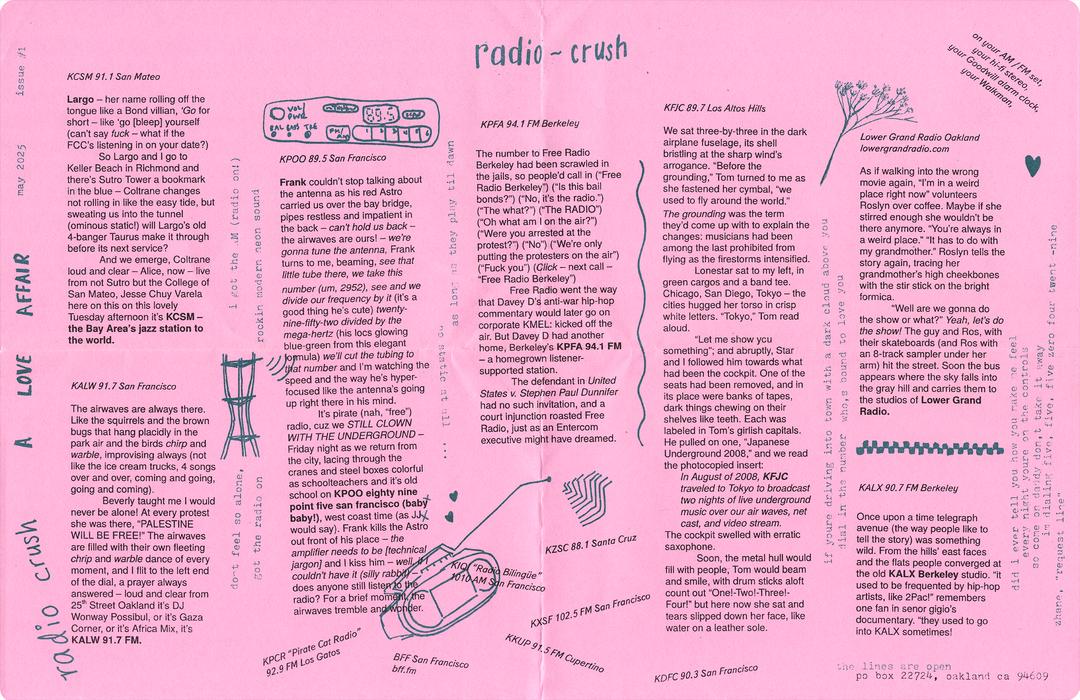 radio ~ crush
issue #1
may 2025
A LOVE AFFAIR
radio crush
KCSM 91.1 San Mateo
Largo – her name rolling off the
tongue like a Bond villian, 'Go for
short – like 'go [bleep] yourself
(can't say fuck – what if the
FCC's listening in on your date?)
So Largo and I go to
Keller Beach in Richmond and
there's Sutro Tower a bookmark
in the blue – Coltrane changes
not rolling in like the easy tide, but
sweating us into the tunnel
(ominous static!) will Largo's old
4-banger Taurus make it through
before its next service?
And we emerge, Coltrane
loud and clear – Alice, now – live
from not Sutro but the College of
San Mateo, Jesse Chuy Varela
here on this on this lovely
Tuesday afternoon it's KCSM –
the Bay Area's jazz station to
the world.
KALW 91.7 San Francisco
The airwaves are always there.
Like the squirrels and the brown
bugs that hang placidly in the
park air and the birds chirp and
warble, improvising always (not
like the ice cream trucks, 4 songs
over and over, coming and going,
going and coming).
Beverly taught me I would
never be alone! At every protest
she was there, "PALESTINE
WILL BE FREE!" The airwaves
are filled with their own fleeting
chirp and warble dance of every
moment, and I flit to the left end
of the dial, a prayer always
answered – loud and clear from
25th Street Oakland it's DJ
Wonway Possibul, or it's Gaza
Corner, or it's Africa Mix, it's
KALW 91.7 FM.
i got the AM (radio on!)
rockin modern neon sound
don't feel so alone,
got the radio on
VOL/
PWR
89.5
BAL BASS TRE
FM/
AM
1 2 3 4 5 6
KPOO 89.5 San Francisco
Frank couldn't stop talking about
the antenna as his red Astro
carried us over the bay bridge,
pipes restless and impatient in
the back – can't hold us back –
the airwaves are ours! – we're
gonna tune the antenna, Frank
turns to me, beaming, see that
little tube there, we take this
number (um, 2952), see and we
divide our frequency by it (it's a
good thing he's cute) twenty-
nine-fifty-two divided by the
mega-hertz (his locs glowing
blue-green from this elegant
formula) we'll cut the tubing to
that number and I'm watching the
speed and the way he's hyper-
focused like the antenna's going
up right there in his mind.
It's pirate (nah, "free")
radio, cuz we STILL CLOWN
WITH THE UNDERGROUND –
Friday night as we return from
the city, lacing through the
cranes and steel boxes colorful
as schoolteachers and it's old
school on KPOO eighty nine
point five san francisco (baby
baby!), west coast time (as JJ
would say). Frank kills the Astro
out front of his place – the
amplifier needs to be [technical
jargon] and I kiss him – well, if
couldn't have it (silly rabbit) –
does anyone still listen to the
radio? For a brief moment, the
airwaves tremble and wonder.
as long as they play til dawn
KPFA 94.1 FM Berkeley
The number to Free Radio
Berkeley had been scrawled in
the jails, so people'd call in ("Free
Radio Berkeley") ("Is this bail
bonds?") ("No, it's the radio.")
("The what?") ("The RADIO")
("Oh what am I on the air?")
("Were you arrested at the
protest?") ("No") ("We're only
putting the protesters on the air")
("Fuck you") (Click – next call –
"Free Radio Berkeley")
Free Radio went the way
that Davey D's anti-war hip-hop
commentary would later go on
corporate KMEL: kicked off the
air. But Davey D had another
home, Berkeley's KPFA 94.1 FM
– a homegrown listener-
supported station.
The defendant in United
States v. Stephen Paul Dunnifer
had no such invitation, and a
court injunction roasted Free
Radio, just as an Entercom
executive might have dreamed.
KPCR "Pirate Cat Radio"
92.9 FM Los Gatos
BFF San Francisco
bff.fm
KIQI "Radio Bilingüe"
1010 AM San Francisco
KZSC 88.1 Santa Cruz
KXSF 102.5 FM San Francisco
KKUP 91.5 FM Cupertino
KDFC 90.3 San Francisco
KFJC 89.7 Los Altos Hills
We sat three-by-three in the dark
airplane fuselage, its shell
bristling at the sharp wind's
arrogance. "Before the
grounding," Tom turned to me as
she fastened her cymbal, "we
used to fly around the world."
The grounding was the term
they'd come up with to explain the
changes: musicians had been
among the last prohibited from
flying as the firestorms intensified.
Lonestar sat to my left, in
green cargos and a band tee.
Chicago, San Diego, Tokyo – the
cities hugged her torso in crisp
white letters. "Tokyo," Tom read
aloud.
"Let me show you
something"; and abruptly, Star
and I followed him towards what
had been the cockpit. One of the
seats had been removed, and in
its place were banks of tapes,
dark things chewing on their
shelves like teeth. Each was
labeled in Tom's girlish capitals.
He pulled on one, "Japanese
Underground 2008," and we read
the photocopied insert:
In August of 2008, KFJC
traveled to Tokyo to broadcast
two nights of live underground
music over our air waves, net
cast, and video stream.
The cockpit swelled with erratic
saxophone.
Soon, the metal hull would
fill with people, Tom would beam
and smile, with drum sticks aloft
count out "One!-Two!-Three!-
Four!" but here now she sat and
tears slipped down her face, like
water on a leather sole.
if youre driving into town with a dark cloud above you
dial in the number who,s bound to love you
on your AM / FM set,
your hi-fi stereo,
your Goodwill alarm clock,
your Walkman,
Lower Grand Radio Oakland
lowergrandradio.com
As if walking into the wrong
movie again, "I'm in a weird
place right now" volunteers
Roslyn over coffee. Maybe if she
stirred enough she wouldn't be
there anymore. "You're always in
a weird place." "It has to do with
my grandmother." Roslyn tells the
story again, tracing her
grandmother's high cheekbones
with the stir stick on the bright
formica.
"Well are we gonna do
the show or what?" Yeah, let's do
the show! The guy and Ros, with
their skateboards (and Ros with
an 8-track sampler under her
arm) hit the street. Soon the bus
appears where the sky falls into
the gray hill and carries them to
the studios of Lower Grand
Radio.
KALX 90.7 FM Berkeley
Once upon a time telegraph
avenue (the way people like to
tell the story) was something
wild. From the hills' east faces
and the flats people converged at
the old KALX Berkeley studio. "it
used to be frequented by hip-hop
artists, like 2Pac!" remembers
one fan in senor gigio's
documentary. "they used to go
into KALX sometimes!
did i ever tell you how you make me feel
every night youre on the controls
so come on daddy don,t take it away
im dialing five, five, five zero four twent -nine
zhane, "request line"
the lines are open
po box 22724, oakland ca 94609